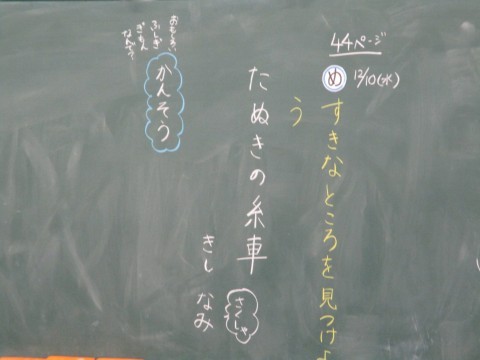 44ページ
め 12/10(水)
すきなところを見つけよ
う
たぬきの糸車
きし なみ
さくしゃ
かんそう
おもしろい
ふしぎ
ぎもん
なんで?